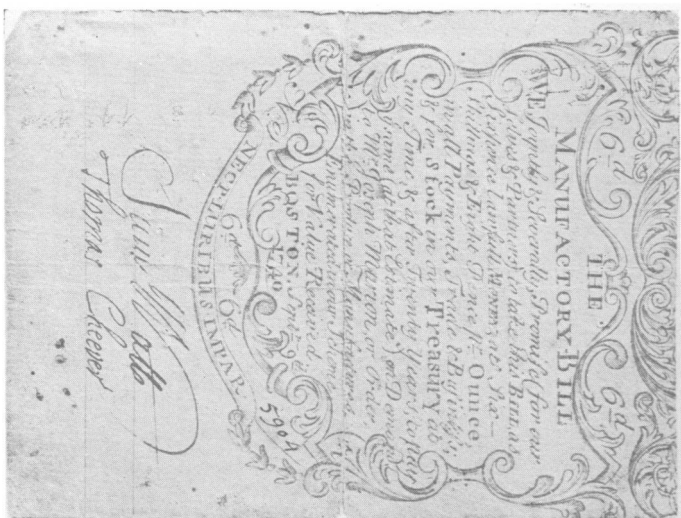 6d 6d
THE
MANUFACTORY BILL
WE Joyntly & Severally Promise for our
Selves & Partners to take this BILL as
Sixpence lawfull Money at Six
Shillings & Eight Pence pr. Ounce
in all Payments, Trade & Business,
& for Stock in our Treasury at
any Time & after Twenty Years, to pay
at that Estimate on Demand
to Mr. Joseph Marion or Order
in the Produce or Manufactures
Enumerated in our Scheme
for Value Received
BOSTON, Septr. 9th
1740
No 590A
6d 6d
NEC PLURIBUS IMPAR.
Saml Watts
Thomas Cheever